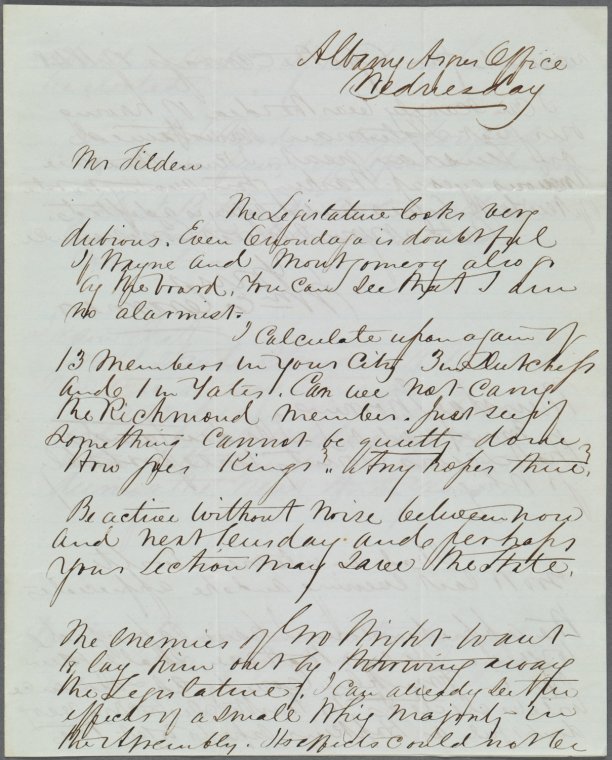 Albany Argus Office
Wednesday
Mr Tilden
The Legislature looks very
dubious. Even Onondaga is doubtful
if Wayne and Montgomery also go
by the board. You can see that I am
no alarmist.
I calculate upon a gain of
13 members in your City 3 in Dutchess
and 1 in Yates. Can we not carry
the Richmond member. Just see if
something cannot be quietly done
How goes Kings? Any hopes there?
Be active without noise between now
and next Tuesday and perhaps
your Section may save the State.
The enemies of Gov Wright want
to lay him out by throwing away
the Legislature. I can already see the
effects of a small Whig majority in
the Assembly. Its effects could not be